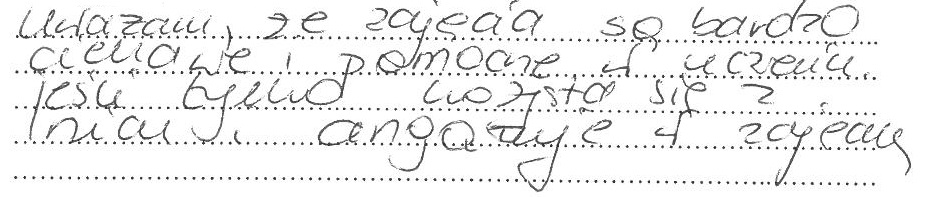 Uważam, że zajęcia są bardzo
ciekawe i pomocne w uczeniu.
jeśli tylko korzysta się z
nich i angażuje w zajęcia